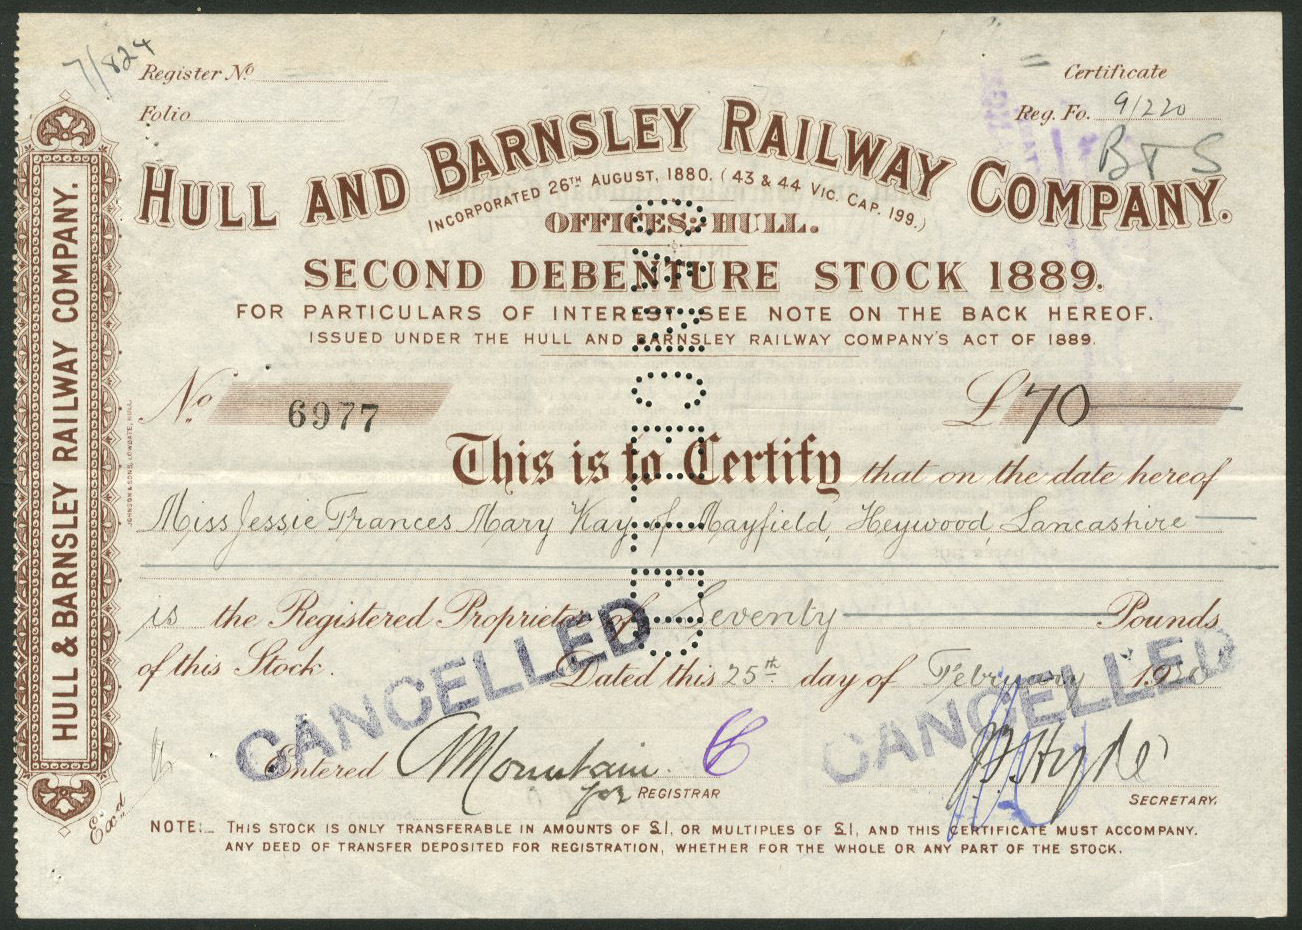 7/824
Register No
Certificate
Folio
Reg. Fo. 9/220
B T S
HULL AND BARNSLEY RAILWAY COMPANY.
INCORPORATED 26TH AUGUST, 1880. (43 & 44 VIC. CAP. 199.)
OFFICES: HULL.
SECOND DEBENTURE STOCK 1889.
FOR PARTICULARS OF INTEREST, SEE NOTE ON THE BACK HEREOF.
ISSUED UNDER THE HULL AND BARNSLEY RAILWAY COMPANY'S ACT OF 1889.
CANCELLED
No 6977
£70
This is to Certify that on the date hereof
Miss Jessie Frances Mary Kay of Mayfield, Heywood, Lancashire
is the Registered Proprietor of Seventy Pounds
of this Stock. Dated this 25th day of February 1920
CANCELLED
CANCELLED
Entered A Mountain
for REGISTRAR
Hyde
SECRETARY.
Exd
NOTE:- THIS STOCK IS ONLY TRANSFERABLE IN AMOUNTS OF £1, OR MULTIPLES OF £1, AND THIS CERTIFICATE MUST ACCOMPANY.
ANY DEED OF TRANSFER DEPOSITED FOR REGISTRATION, WHETHER FOR THE WHOLE OR ANY PART OF THE STOCK.
HULL & BARNSLEY RAILWAY COMPANY.
JOHNSON & SONS, LOWGATE, HULL.